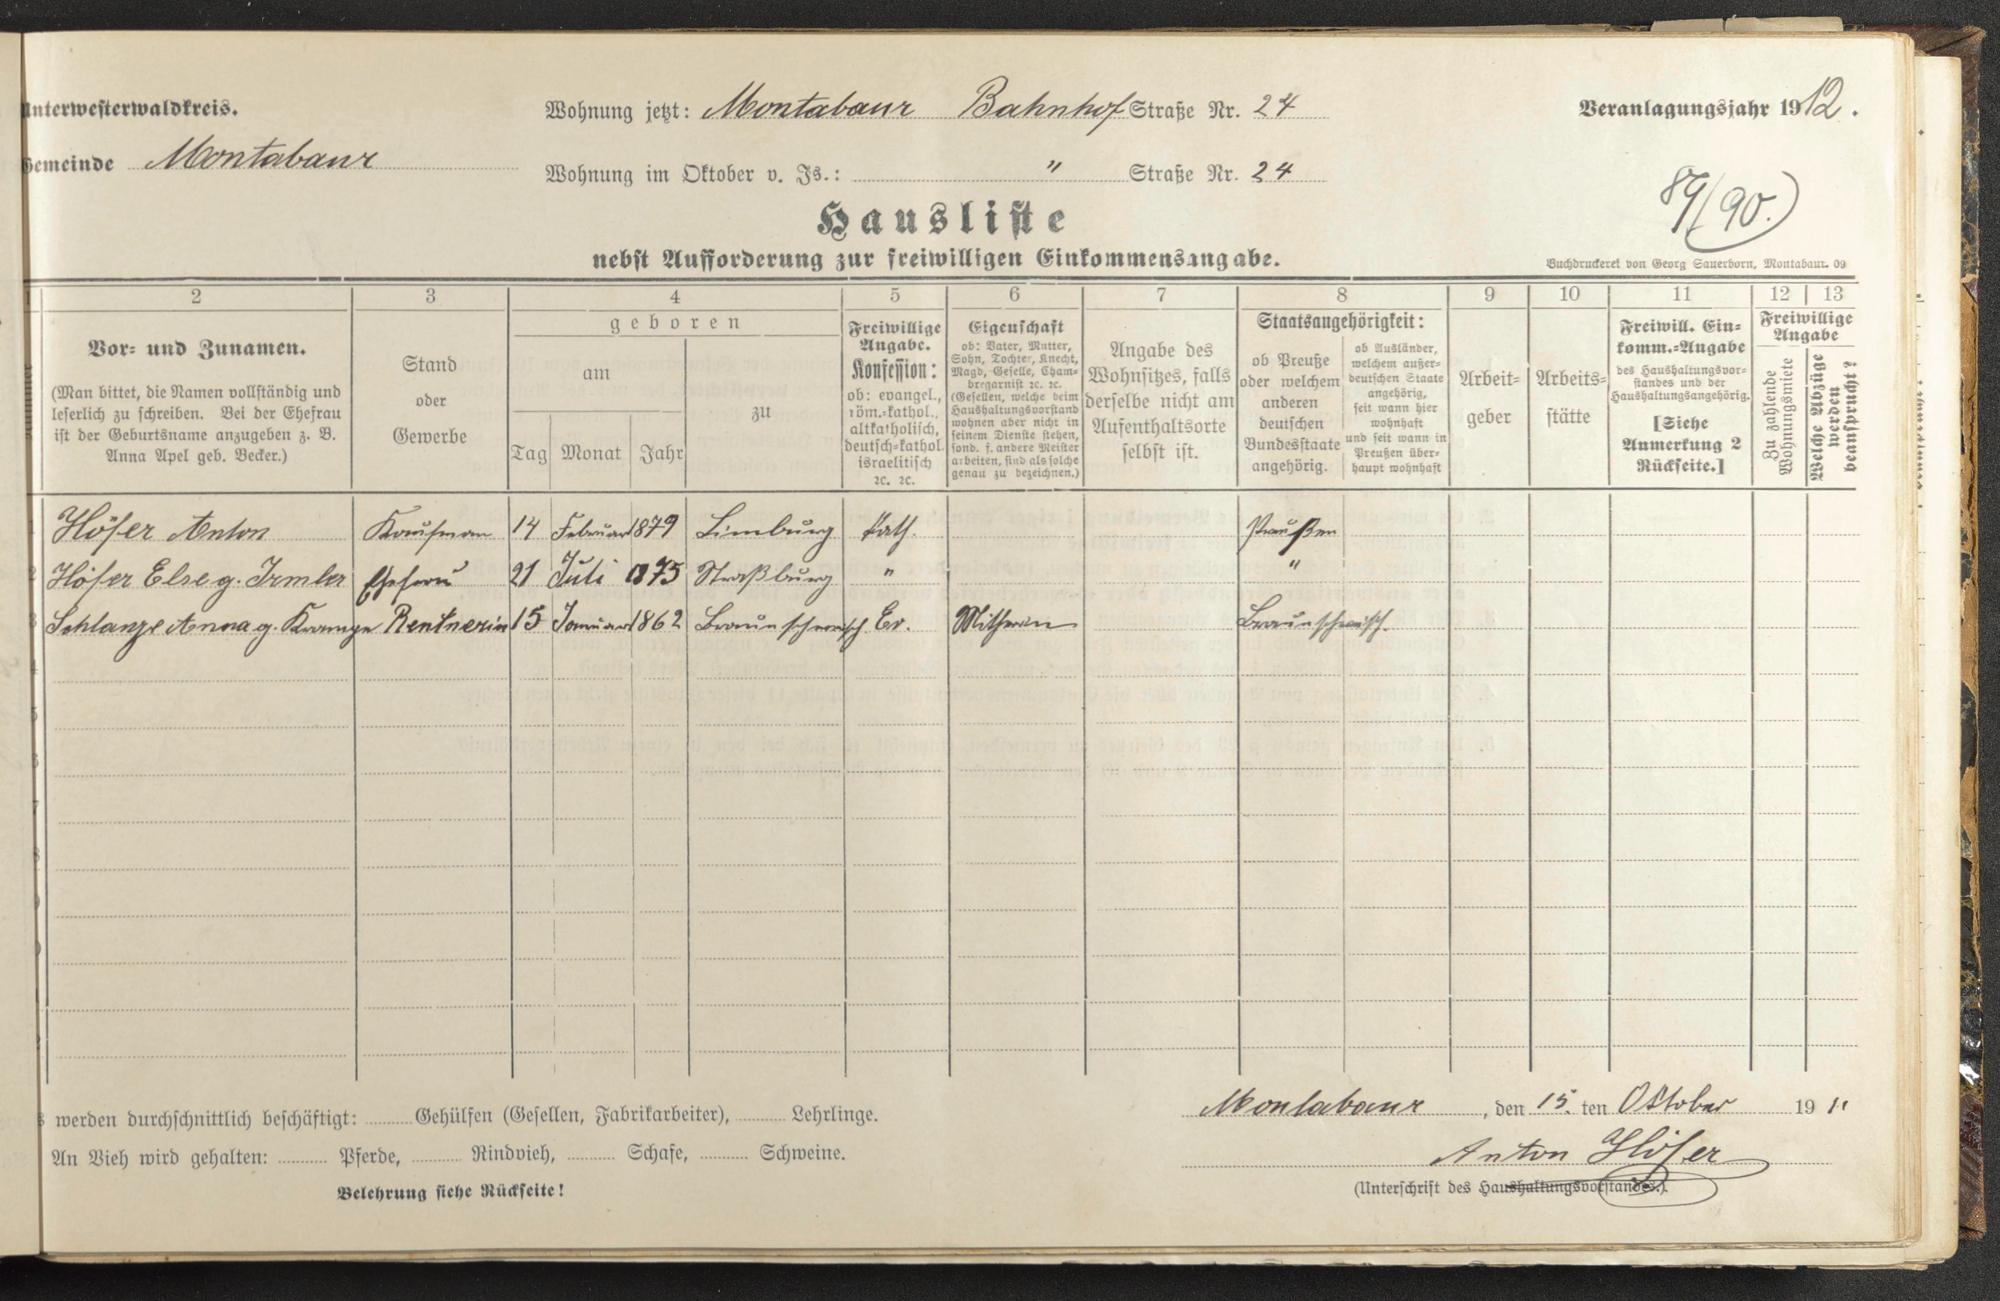 Unterwesterwaldkreis.
Wohnung jetzt: Montabaur Bahnhof Straße Nr. 24
Veranlagungsjahr 1912.
Gemeinde Montabaur
Wohnung im Oktober v. Js.: " Straße Nr. 24
89/90.)
Hausliste
nebst Aufforderung zur freiwilligen Einkommensangabe.
Buchdruckerei von Georg Sauerborn, Montabaur. 09
2 3 4 5 6 7 8 9 10 11 12 13
Vor- und Zunamen.
(Man bittet, die Namen vollständig und
leserlich zu schreiben. Bei der Ehefrau
ist der Geburtsname anzugeben z. B.
Anna Apel geb. Becker.)
Stand
oder
Gewerbe
geboren
am
Tag Monat Jahr
zu
Freiwillige
Angabe.
Konfession:
ob: evangel.,
röm.-kathol.,
altkatholisch,
deutsch-kathol.
israelitisch
ꝛc. ꝛc.
Eigenschaft
ob: Vater, Mutter,
Sohn, Tochter, Knecht,
Magd, Geselle, Cham-
bregarnist ꝛc. ꝛc.
(Gesellen, welche beim
Haushaltungsvorstand
wohnen aber nicht in
seinem Dienste stehen,
sond. f. andere Meister
arbeiten, sind als solche
genau zu bezeichnen.)
Angabe des
Wohnsitzes, falls
derselbe nicht am
Aufenthaltsorte
selbst ist.
Staatsangehörigkeit:
ob Preuße
oder welchem
anderen
deutschen
Bundesstaate
angehörig.
ob Ausländer,
welchem außer-
deutschen Staate
angehörig,
seit wann hier
wohnhaft
und seit wann in
Preußen über-
haupt wohnhaft
Arbeit-
geber
Arbeits-
stätte
Freiwill. Ein-
komm.-Angabe
des Haushaltungsvor-
standes und der
Haushaltungsangehörig.
[Siehe
Anmerkung 2
Rückseite.]
Freiwillige
Angabe
Zu zahlende
Wohnungsmiete
Welche Abzüge
werden
beansprucht?
Höfer Anton Kaufman 14 Februar 1879 Limburg kath. Preußen
Höfer Else g. Irmler Ehefrau 21 Juli 1875 Straßburg " "
Schlanze Anna g. Krampe Rentnerin 15 Januar 1862 Braunschweisch Ev. Mitherin Braunschweisch.
werden durchschnittlich beschäftigt: Gehülfen (Gesellen, Fabrikarbeiter), Lehrlinge.
An Vieh wird gehalten: Pferde, Rindvieh, Schafe, Schweine.
Belehrung siehe Rückseite!
Montabaur, den 15. ten Oktober 1911
Anton Höfer
(Unterschrift des Haushaltungsvorstandes.)